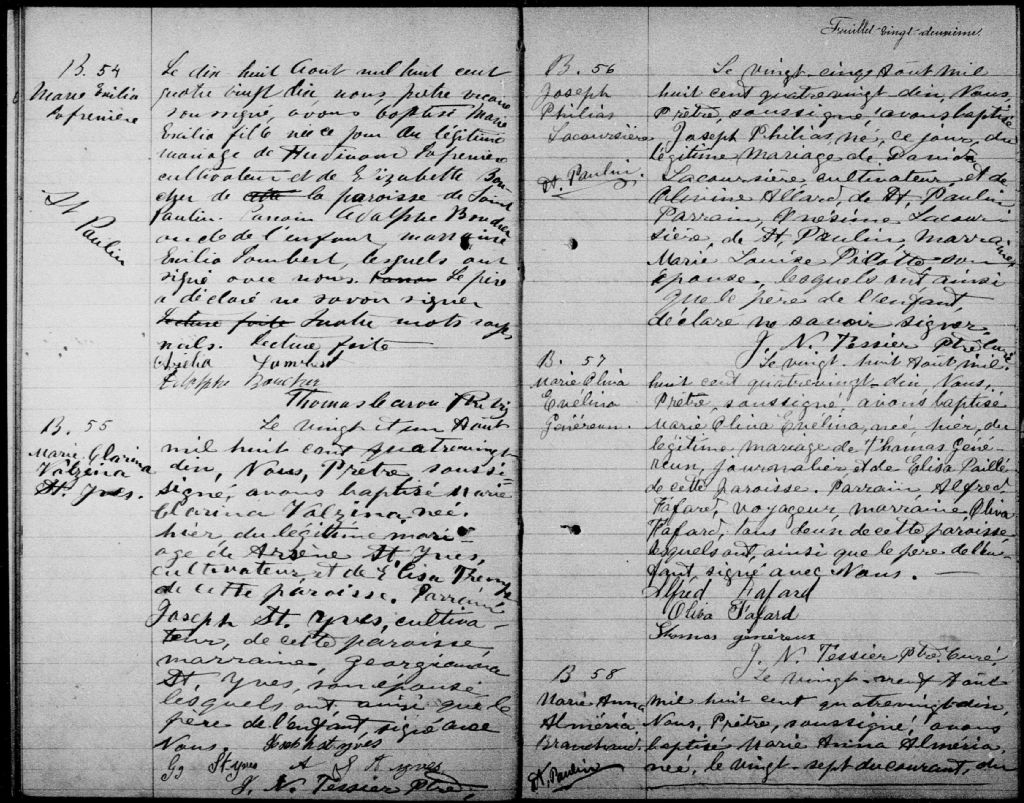 B. 54
Marie Emilia
Lafrenière
St Paulin
Le dix huit Aout mil huit cent
quatre vingt dix nous prêtre vicaire
soussigné, avons baptisé Marie
Emilia fille née ce jour du légitime
mariage de Lafrenière
cultivateur et de Elizabette Bou-
cher de cette la paroisse de Saint
Paulin. Parrain Adolphe Boucher
oncle de l'enfant, marraine
Emilia Lambert, lesquels ont
signé avec nous. Le père
a déclaré ne savoir signer
Lecture faite Quatre mots rayés
nuls. Lecture faite
Emilia Lambert
Adolphe Boucher
Thomas Caron Ptre Vic
B. 55
Marie Clarina
Valzina
St. Yves.
Le vingt et un Août
mil huit cent quatrevingt
dix, Nous, Prêtre soussi-
signé, avons baptisé Marie
Clarina Valzina, née
hier, du légitime mari-
age de Arsène St. Yves,
cultivateur, et de Elisa
de cette paroisse. Parrain
Joseph St. Yves, cultiva-
teur, de cette paroisse,
marraine, Georgianna
St Yves, son épouse
lesquels ont ainsi que le
père de l'enfant, signé avec
Nous. Joseph St yves
Gg St yves A St yves
J. N. Tessier Ptre,
Feuillet vingt-deuxième.
B. 56
Joseph
Philias
Lacoursière
St. Paulin.
Le vingt-cinq Août mil
huit cent quatrevingt dix, Nous,
Prêtre, soussigné, avons baptisé
Joseph Philias, né, ce jour, du
légitime mariage de David
Lacoursière cultivateur, et de
Olivine Allard, de St. Paulin
Parrain, Onésime Lacour-
sière, de St. Paulin, marraine
Marie Louise Picotte son
épouse, lesquels ont ainsi
que le père de l'enfant
déclaré ne savoir signer.
J. N. Tessier Ptre Curé
B. 57
Marie Oliva
Evélina
Généreux.
Le vingt-huit Août mil
huit cent quatrevingt-dix, Nous,
Prêtre, soussigné, avons baptisé
Marie Oliva Evelina, née hier, du
légitime mariage de Thomas Géné-
reux, journalier et de Elisa Paillé
de cette paroisse. Parrain Alfred
Fafard, voyageur, marraine Oliva
Fafard, tous deux de cette paroisse
lesquels ont, ainsi que le père de l'en-
fant, signé avec Nous.
Alfred Fafard
Oliva Fafard
Thomas généreux
J. N. Tessier Ptre Curé
B 58
Marie Anna
Alméria
Branchaud.
St. Paulin
Le vingt-neuf Août
mil huit cent quatrevingt dix,
Nous, Prêtre, soussigné, avons
baptisé Marie Anna Alméria,
née, le vingt-sept du courant, du